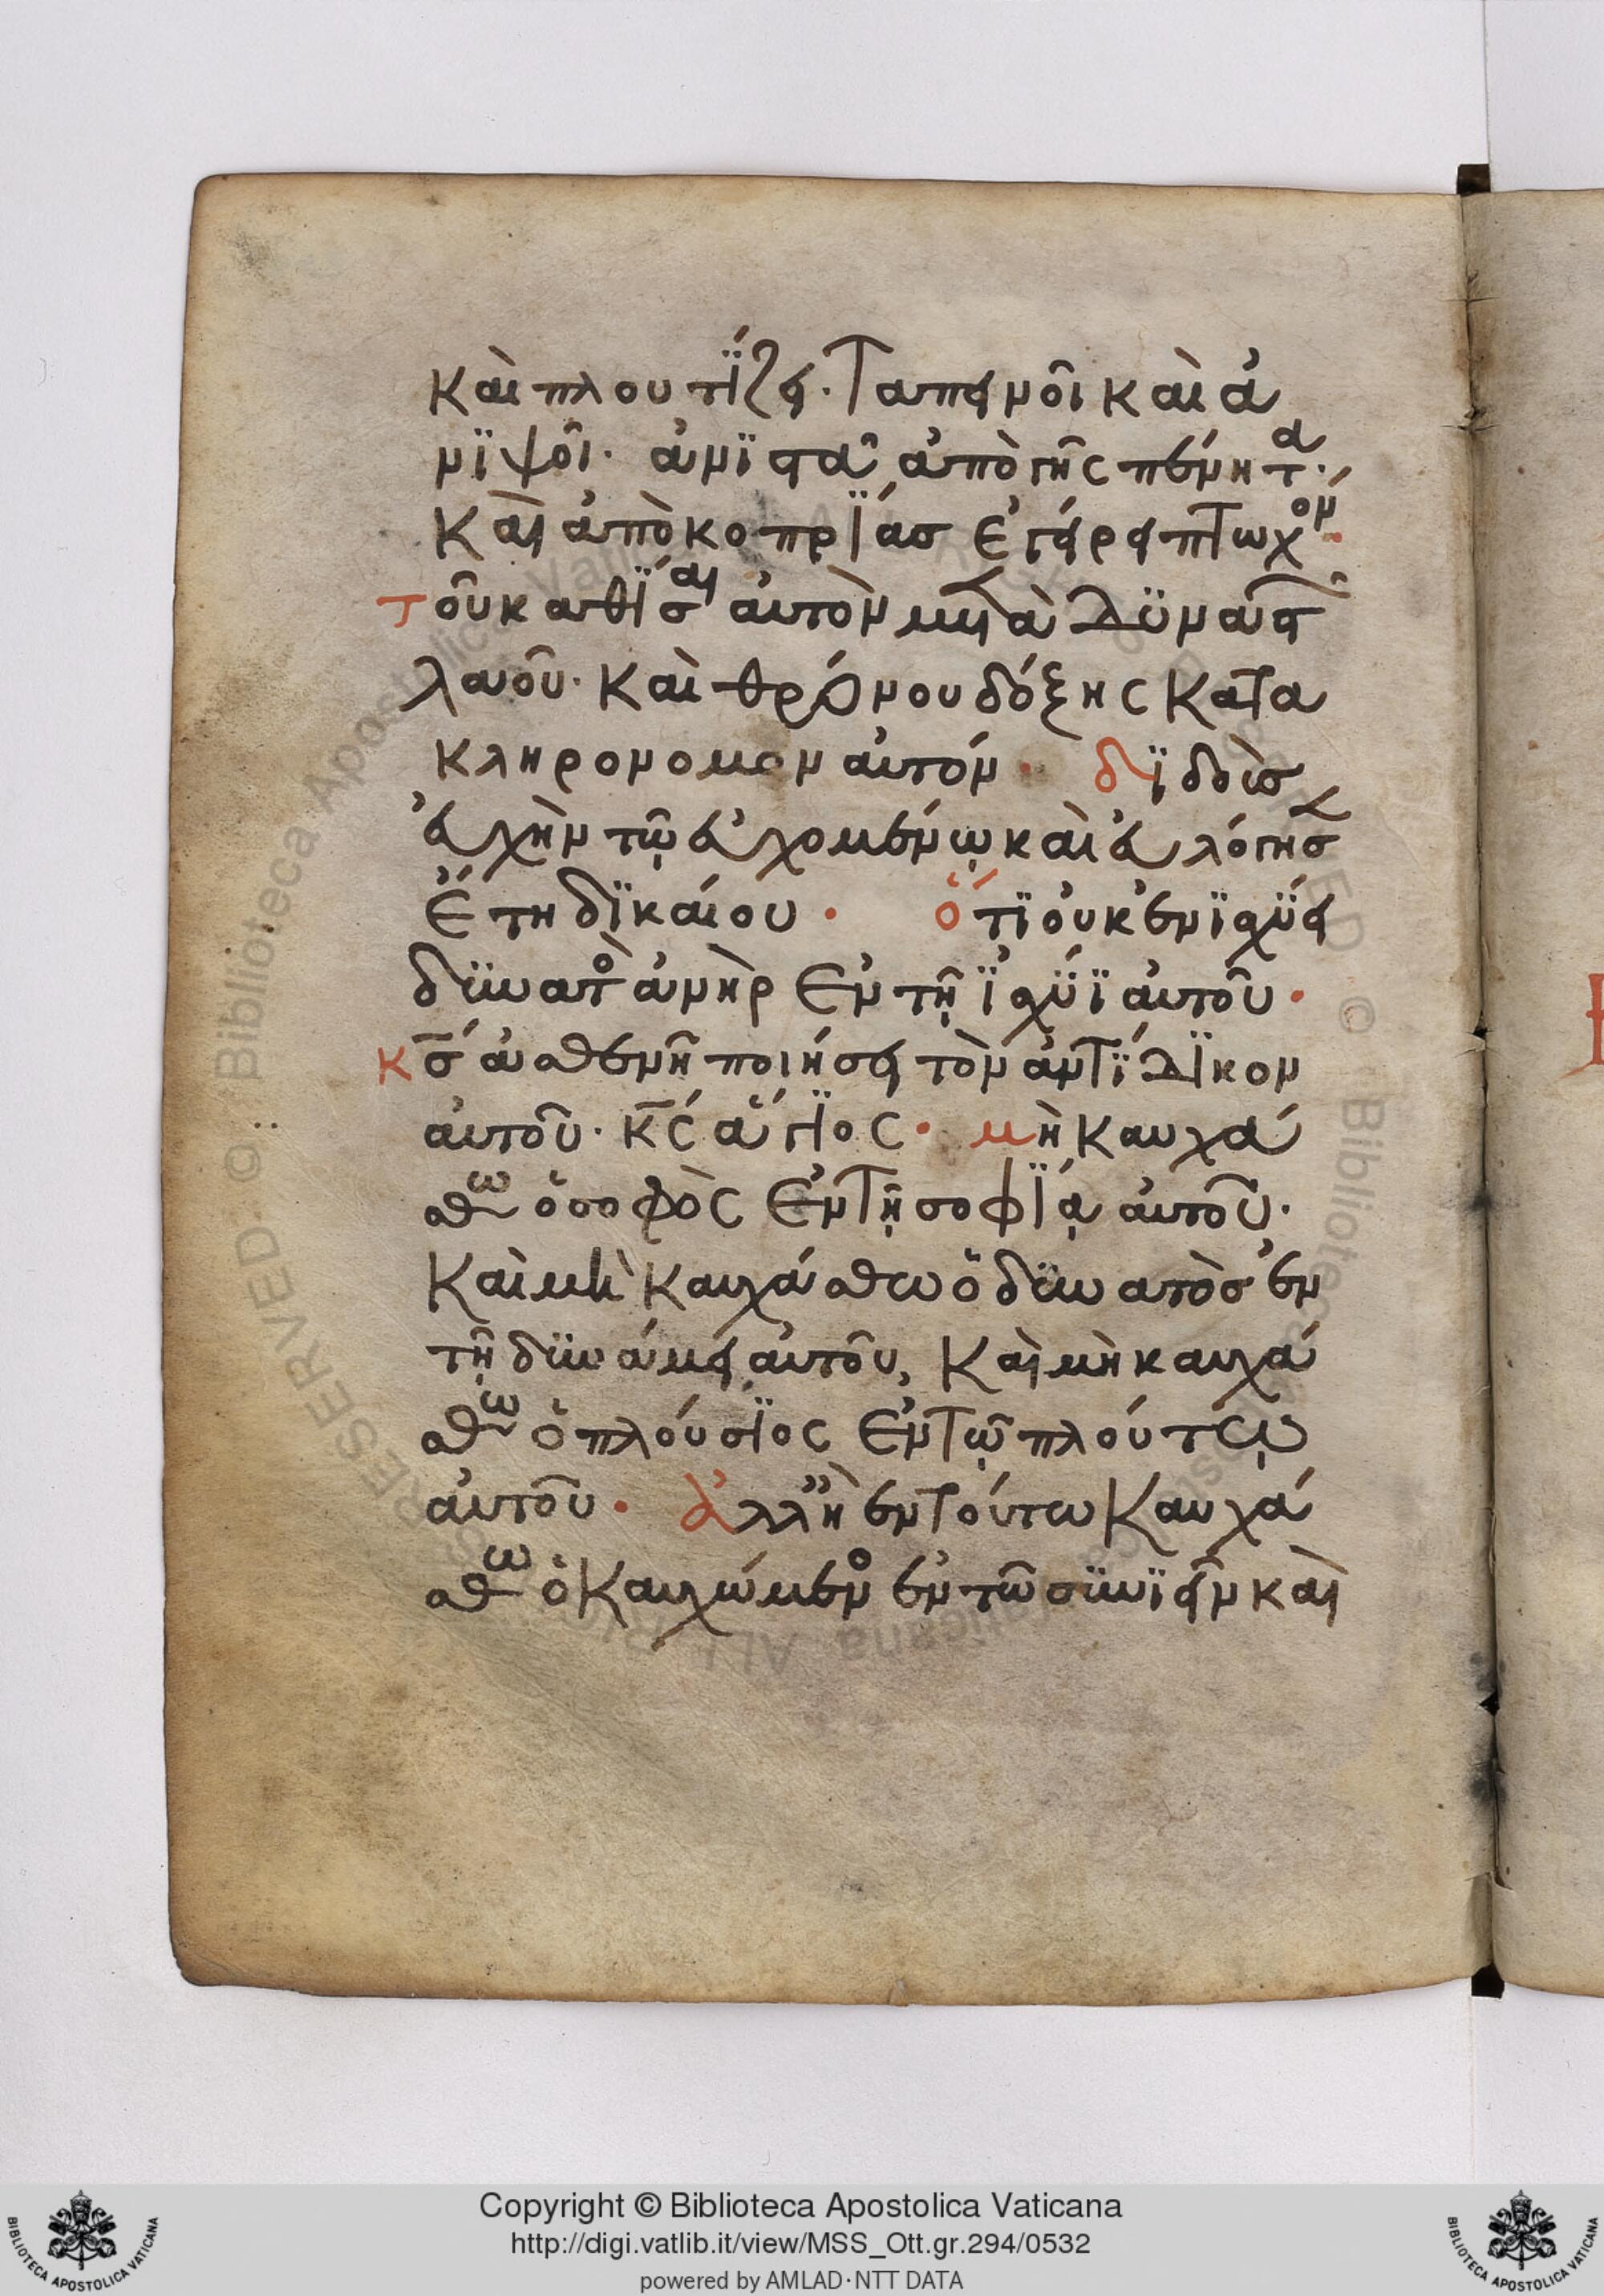 καὶ πλουτΐζει· Ταπεινοῖ καὶ ἀ
νϊψοῖ· ἀνϊστᾶ ἀπὸ γῆς πένητα·
Καὶ ἀπὸ κοπρΐας ἐγείρει πτωχόν·
τοῦ καθΐσαι αὐτὸν μετὰ δϋναστῶν
λαοῦ· Καὶ θρόνου δόξης Κατα
κληρονομον αὐτόν· δϊδοὺς
εὐχὴν τῶ εὐχομένω καὶ εὐλόγησεν
ἔτη δϊκαίου· ὅτϊ οὐκ ἐνϊσχϋει
δϋνατὸς ἀνὴρ ἐν τῆ ϊσχϋϊ αὐτοῦ·
κς ἀσθενῆ ποιήσει τὸν ἀντϊδϊκον
αὐτοῦ· κς ἅγϊος· μὴ Καυχά
σθω ὁ σοφὸς ἐν τῆ σοφΐα αὐτοῦ·
Καὶ μὴ καυχάσθω ὁ δϋνατὸς ἐν
τῆ δϋνάμει αὐτοῦ, Καὶ μὴ καυχά
σθω ὁ πλούσϊος ἐν τῶ πλούτω
αὐτοῦ· ἀλλ' ἢ ἐν τούτω Καυχά
σθω ὁ Καυχώμενος ἐν τῶ σϋνϊεῖν καὶ
Copyright © Biblioteca Apostolica Vaticana
http://digi.vatlib.it/view/MSS_Ott.gr.294/0532
powered by AMLAD·NTT DATA
BIBLIOTECA APOSTOLICA VATICANA
BIBLIOTECA APOSTOLICA VATICANA